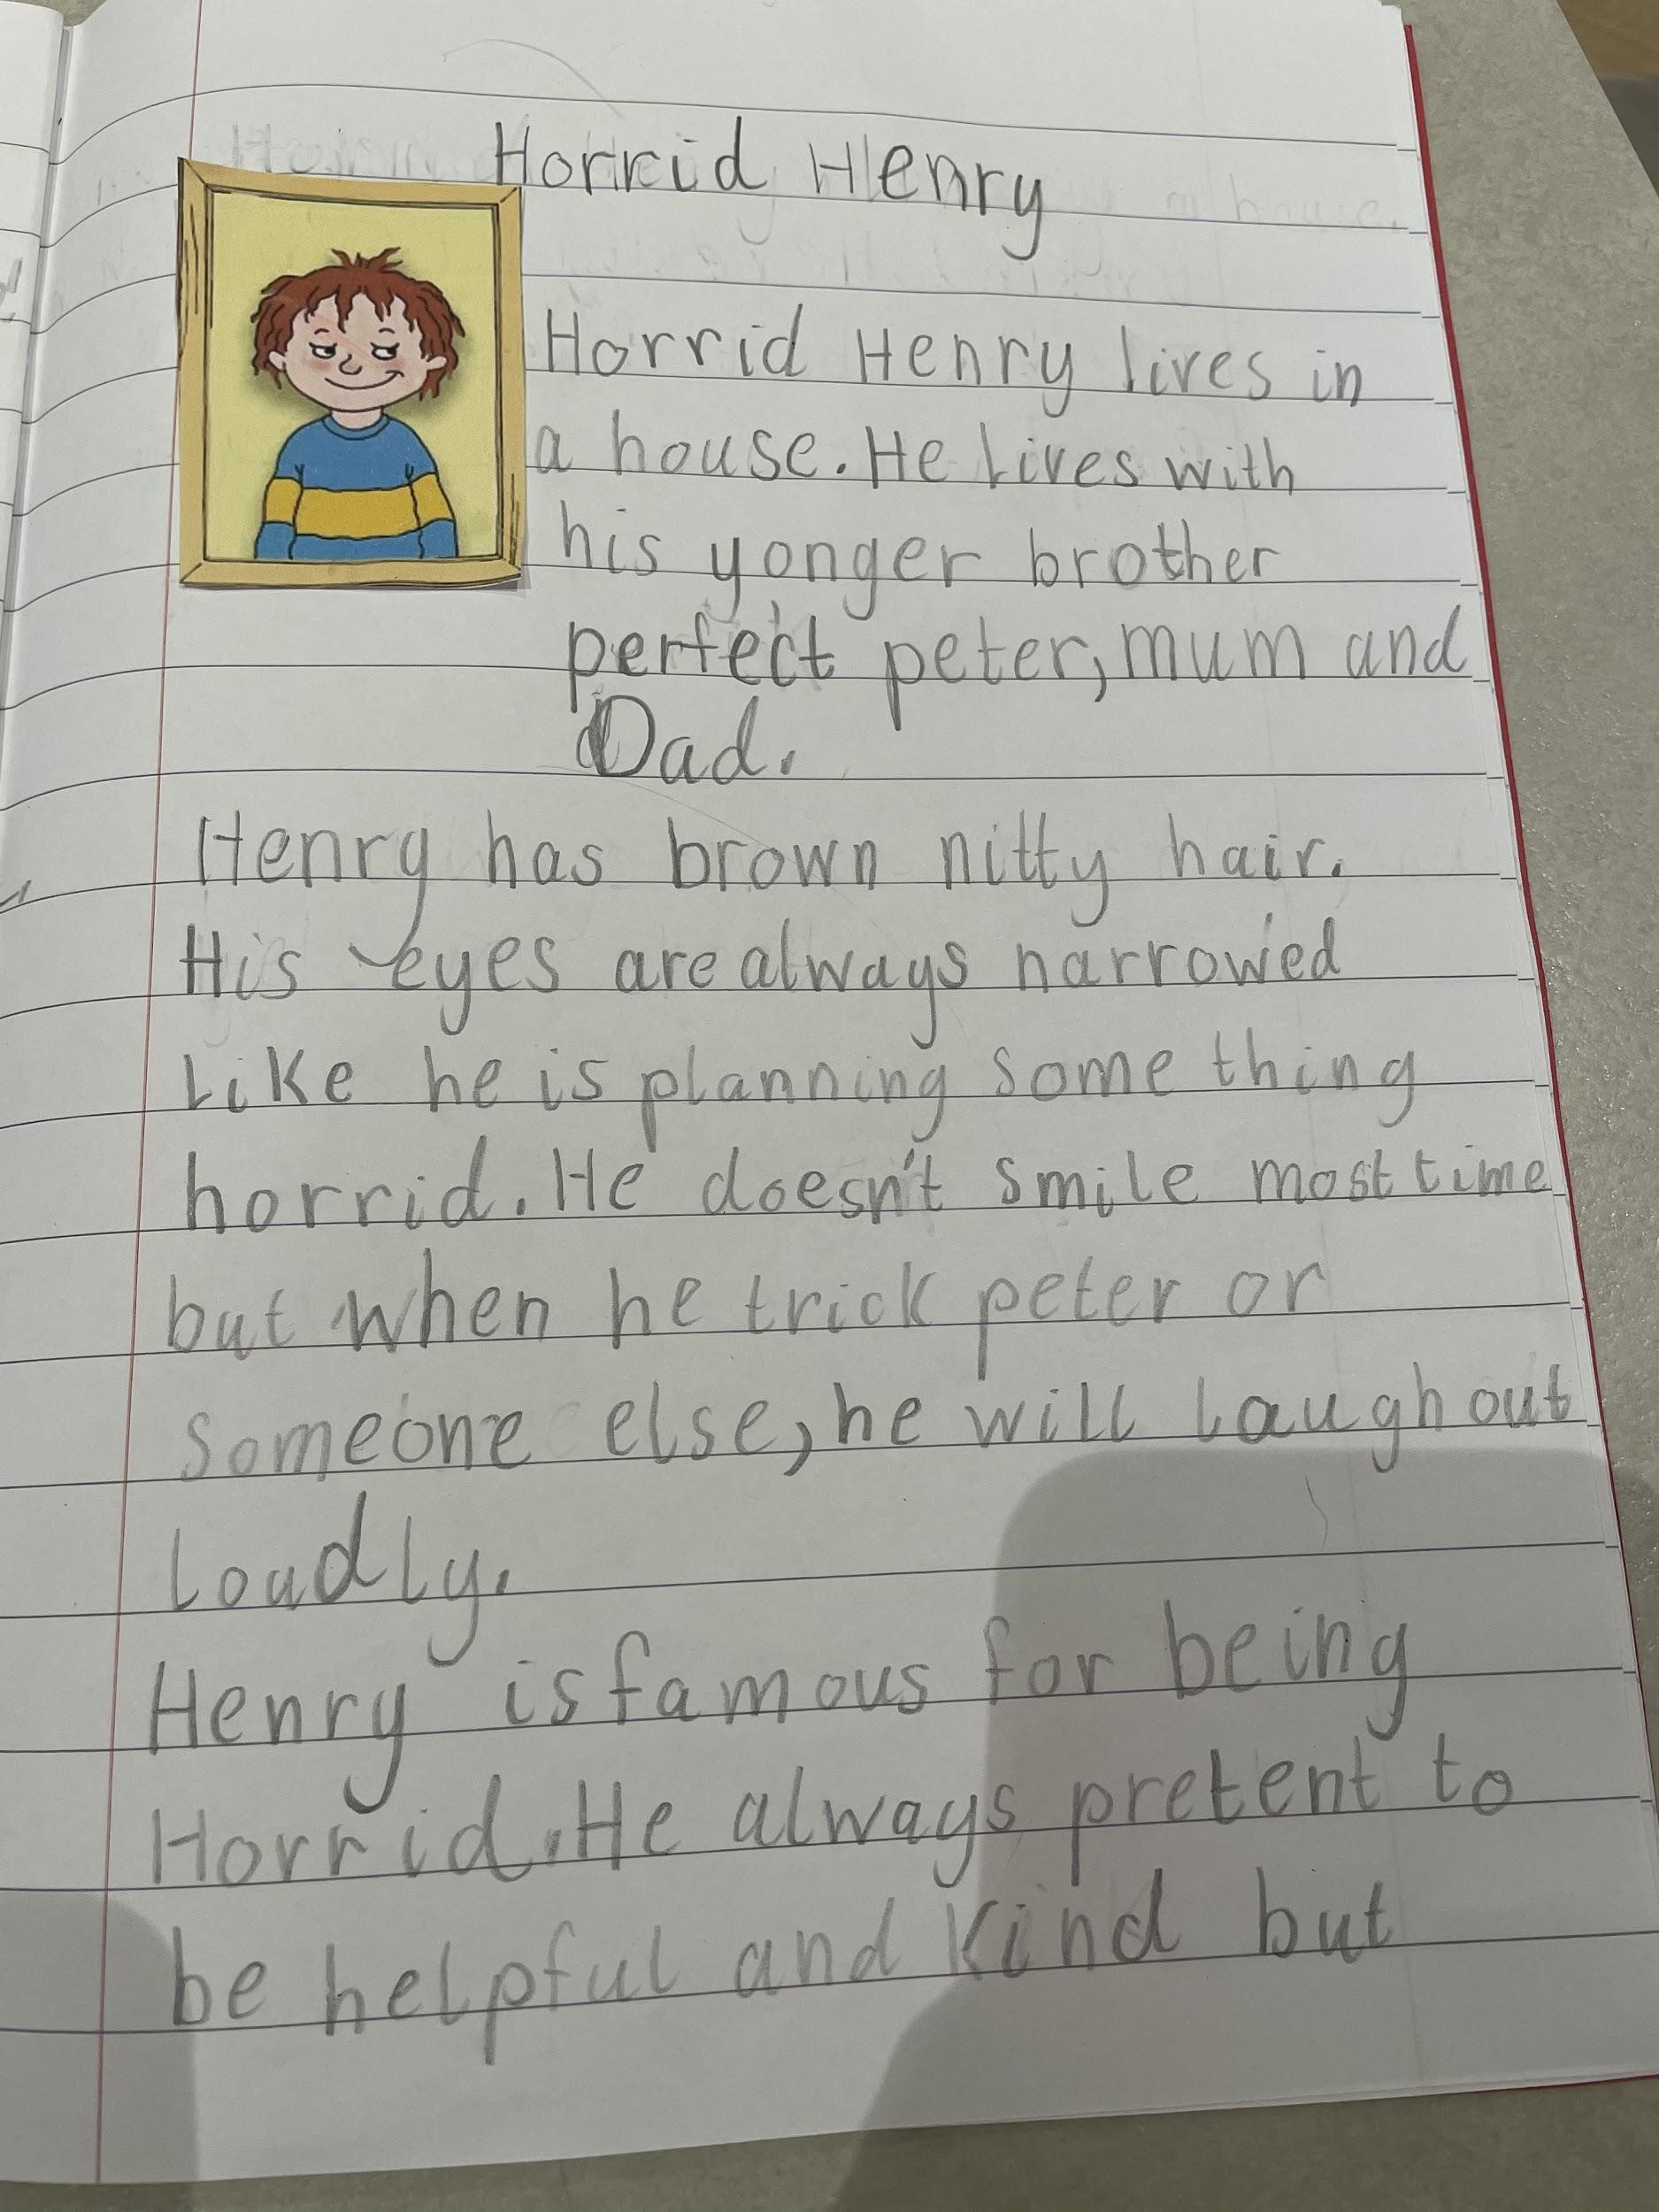 Horrid Henry
Horrid Henry lives in
a house. He lives with
his yonger brother
perfect peter, mum and
Dad.
Henry has brown nitty hair.
His eyes are always narrowed
Like he is planning some thing
horrid. He doesn't smile most time
but when he trick peter or
someone else, he will laugh out
loudly.
Henry is famous for being
Horrid. He always pretent to
be helpful and kind but